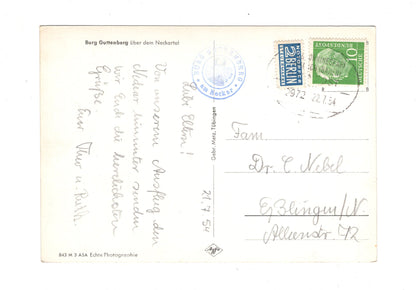 Burg Guttenberg über dem Neckartal
Liebe Eltern!
Von unserem Ausflug den
Neckar hinunter senden
wir Euch die herzlichsten
Grüße
Euer Theo u.
21.7.54
843 M 3 ASA Echte Photographie
Gebr. Metz, Tübingen
Agfa
am Neckar
NOTOPFER
2 BERLIN
STEUERMARKE
DEUTSCHE
BUNDESPOST
10
22.7.54
Fam.
Dr. C. Nebel
Eßlingen/N.
Alleenstr. 72